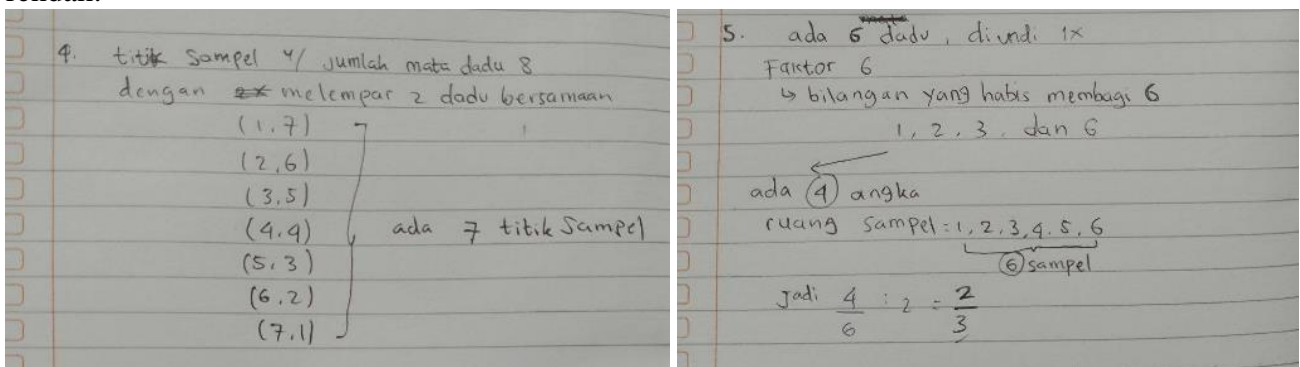 4. titik sampel y/ jumlah mata dadu 8
dengan melempar 2 dadu bersamaan
(1,7)
(2,6)
(3,5)
(4,4)
(5,3)
(6,2)
(7,1)
ada 7 titik sampel
5. ada 6 dadu, diundi 1x
Faktor 6
↳ bilangan yang habis membagi 6
1, 2, 3, dan 6
ada 4 angka
ruang sampel = 1, 2, 3, 4, 5, 6
6 sampel
Jadi 4/6 : 2 = 2/3